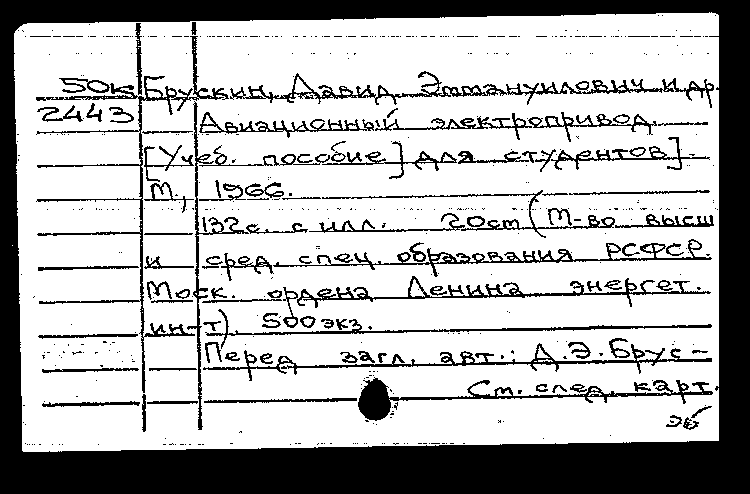 50к Брускин, Давид Эммануилович и др.
2443 Авиационный электропривод.
[Учеб. пособие] для студентов].
М., 1966.
132с. с илл. 20см (М-во высш
и сред. спец. образования РСФСР.
Моск. ордена Ленина энергет.
ин-т). 500экз.
Перед загл. авт.: Д.Э.Брус-
См. след. карт.
эб